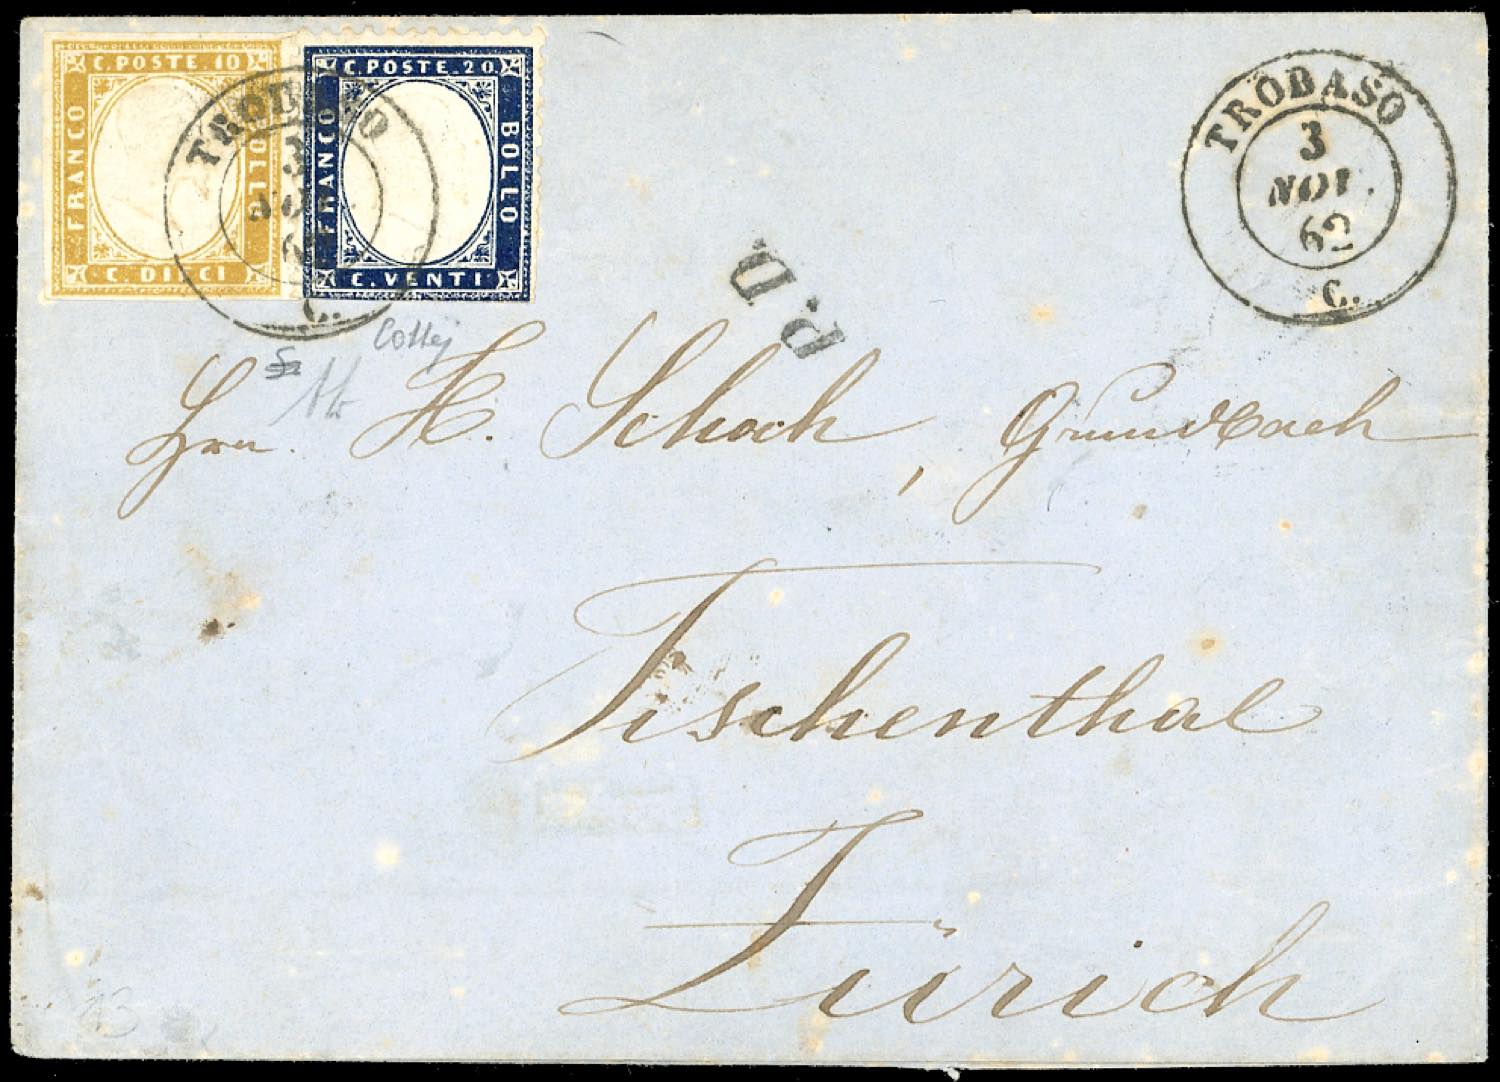 C. POSTE. 10
FRANCO
BOLLO
C. DIECI
C. POSTE. 20.
FRANCO
BOLLO
C. VENTI
TROBASO
3
NOV.
62
C.
TROBASO
3
NOV.
62
C.
P.D.
Hrn. H. Schoch, Grundbach
Fischenthal
Zürich
13